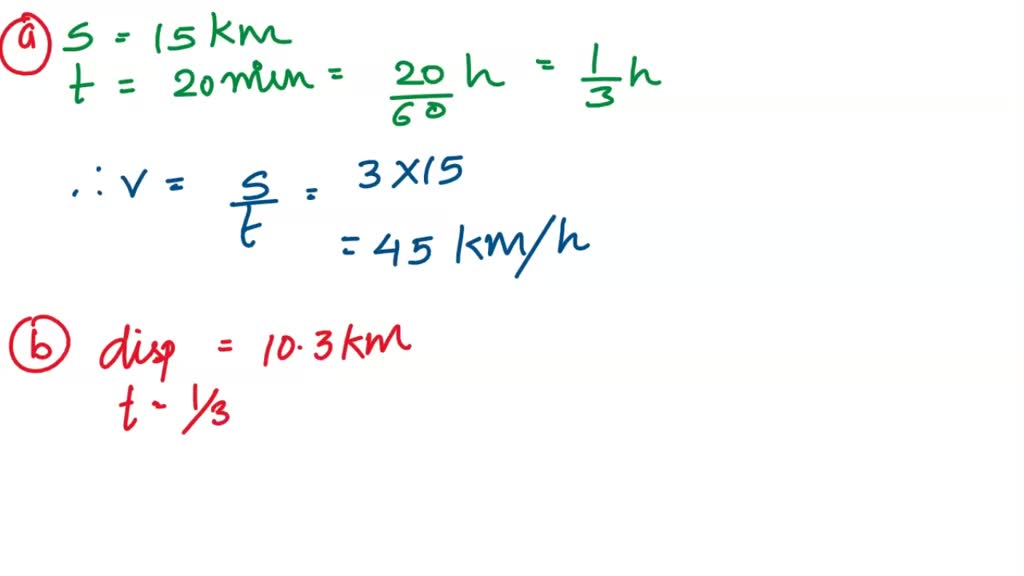 a s = 15 km
t = 20 min = 20/60 h = 1/3 h
∴ v = s/t = 3 × 15
= 45 km/h
b disp = 10.3 km
t - 1/3